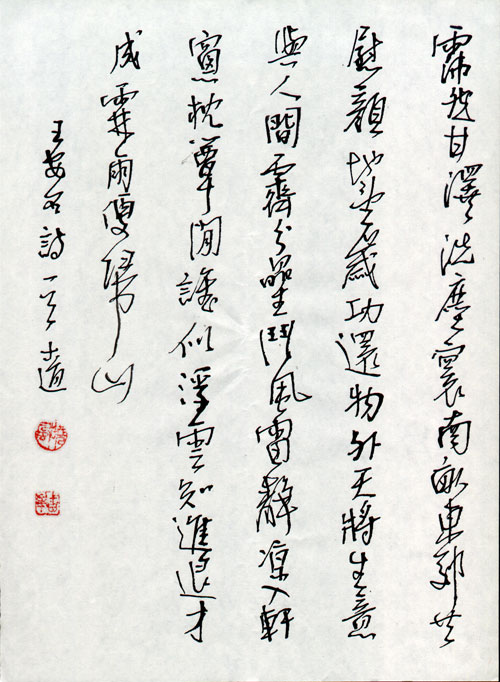 霈然甘澤洗塵寰南畝東郊共
慰顏地望歲功還物外天將生意
與人間霽分星鬥風雷靜涼入軒
窗枕簟閒誰似浮雲知進退才
成霖雨便歸山
王安石詩一首